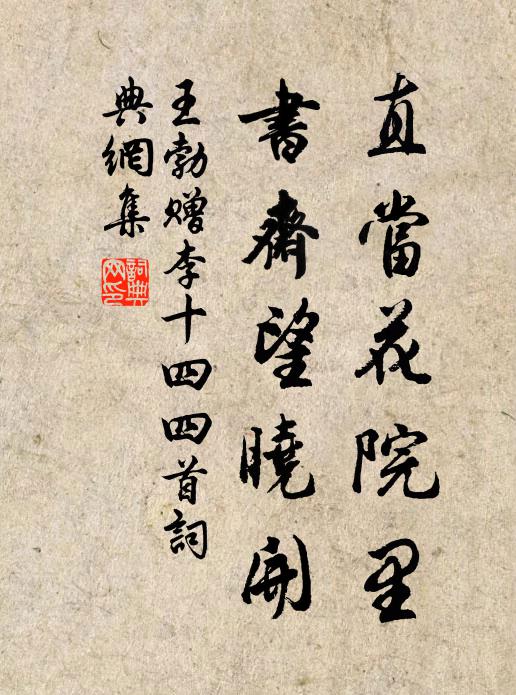 直當花院里
書齋望曉開
王勃贈李十四四首詞
典網集
詞典网印